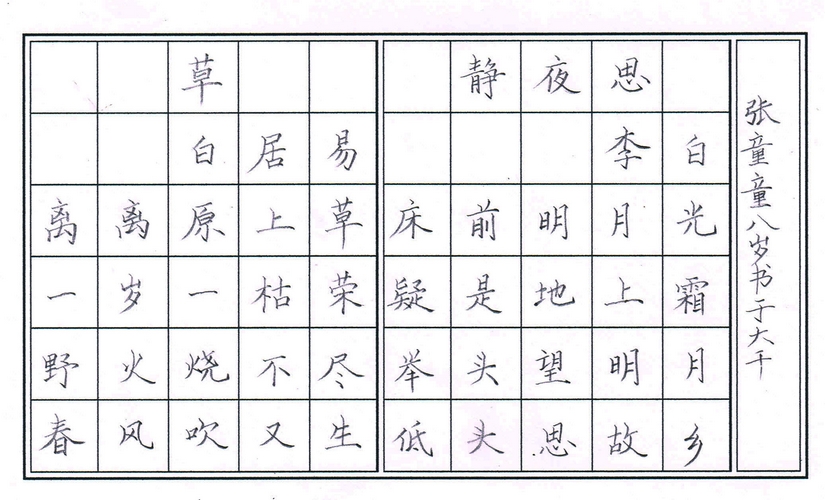 草
白居易
离离原上草
一岁一枯荣
野火烧不尽
春风吹又生
静夜思
李白
床前明月光
疑是地上霜
举头望明月
低头思故乡
张童童八岁书于大千